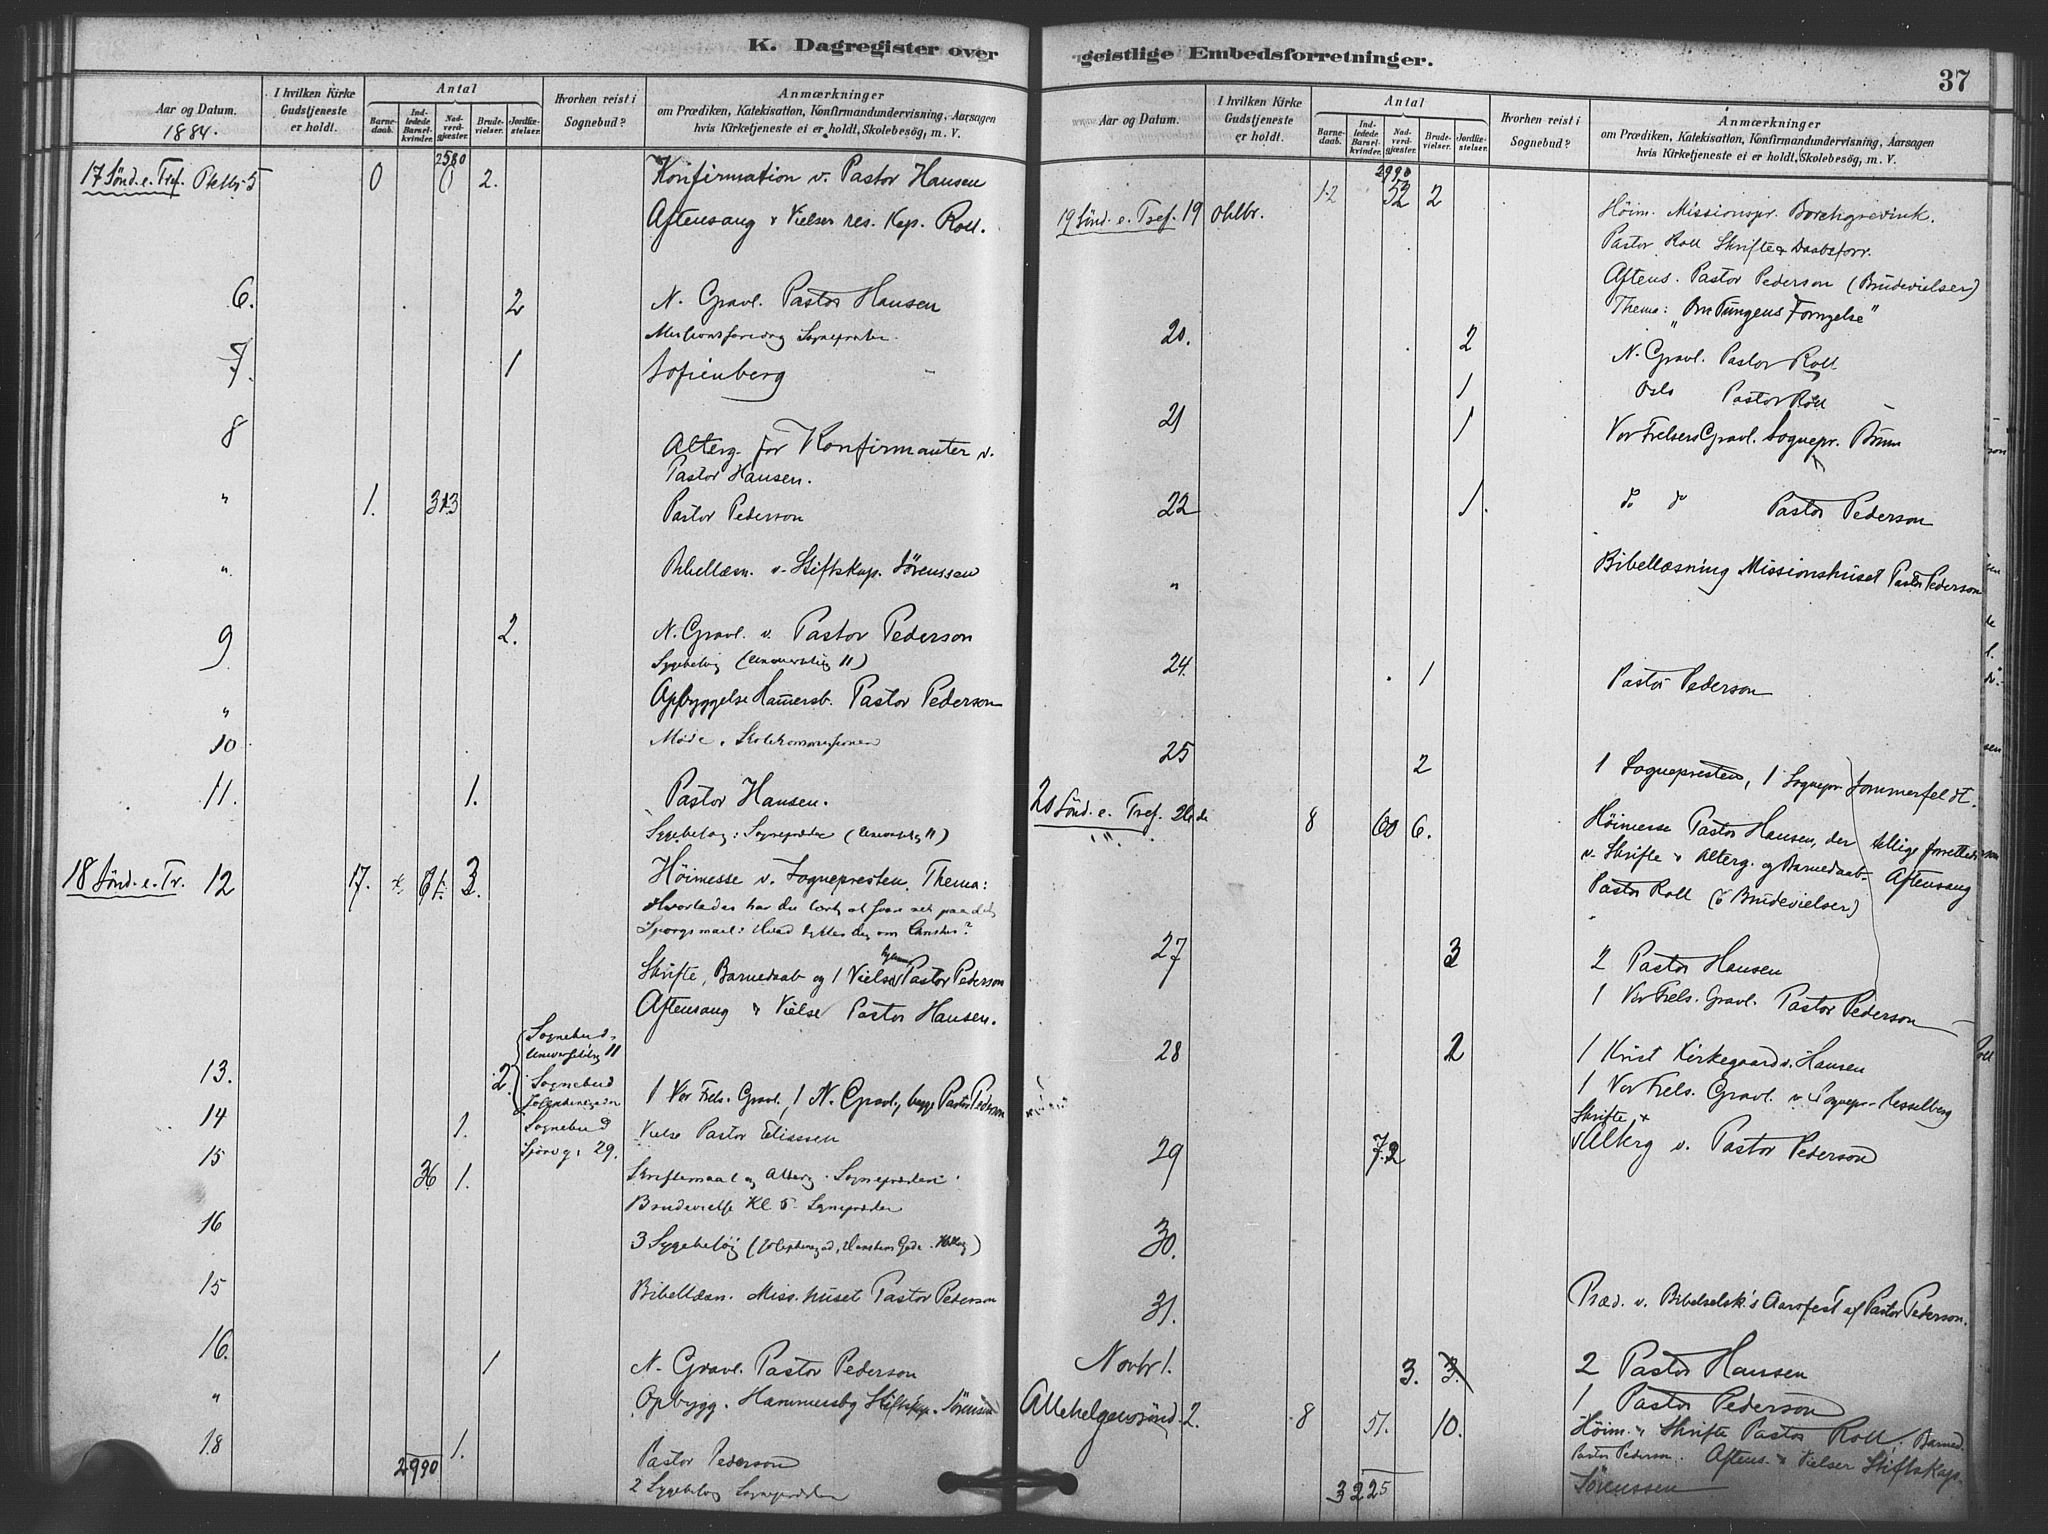 K. Dagregister over
Aar og Datum.
1884.
I hvilken Kirke
Gudstjeneste
er holdt.
Antal
Barne-
daab.
Ind-
ledede
Barsel-
kvinder.
Nad-
verd-
gjæster.
Brude-
vielser.
Jordfæ-
stelser.
Hvorhen reist i
Sognebud?
Anmærkninger
om Prædiken, Katekisation, Konfirmandundervisning, Aarsagen
hvis Kirketjeneste ei er holdt, Skolebesög, m. V.
2580
17 Sönd. e. Tref. 5 0 0 2. Konfirmation v. Pastor Hansen
Aftensang & Vielser res. Kap. Roll.
6. 2 N. Gravl. Pastor Hansen
7. 1 Sofienberg
8 Alterg. for Konfirmanter v.
Pastor Hansen.
" 1. 313 Pastor Pederson
" Bibellæsn. v. Stiftskap. Sörenssen
9 2. N. Gravl. v. Pastor Pederson
" Opbyggelse Hamersb. Pastor Pederson
10 Möde i Skolekommissionen
11. 1. Pastor Hansen.
18 Sönd. e. Tr. 12 17. 61. 3. Höimesse v. Sognepresten. Thema:
Skrifte, Barnedaab og 1 Vielse Pastor Pederson
Aftensang & Vielse Pastor Hansen.
Sognebud
13. 2. Sognebud 1 Vor Frels. Gravl., 1 N. Gravl., begge Pastor Pederson
14 1. Sognebud Vielse Pastor Eliassen
29.
15 36 1. Skriftemaal og Alterg. Sognepræsten
Brudevielse Kl 5 Sognepræsten
16 3 Sygebesög
15 Bibellæsn. Miss. huset Pastor Pederson
16. 1 N. Gravl. Pastor Pederson
" Opbygg. Hammersbg Stiftskap. Sörensen
18 1. Pastor Pederson
2990 2 Sygebesög Sognepræsten
geistlige Embedsforretninger.
37
Aar og Datum.
I hvilken Kirke
Gudstjeneste
er holdt.
Antal
Barne-
daab.
Ind-
ledede
Barsel-
kvinder.
Nad-
verd-
gjæster.
Brude-
vielser.
Jordfæ-
stelser.
Hvorhen reist i
Sognebud?
Anmærkninger
om Prædiken, Katekisation, Konfirmandundervisning, Aarsagen
hvis Kirketjeneste ei er holdt, Skolebesög, m. V.
2990
19 Sönd. e. Tref. 19 Oktbr. 12 52 2 Höim. Missionspr. Borchgrevink.
Pastor Roll Skrifte & Daabsforr.
Aftens. Pastor Pederson (Brudevielser)
Thema: "Om Tungens Fornyelse"
20. 2 N. Gravl. Pastor Roll
1 Oslo Pastor Roll
21 1 Vor Frelsers Gravl. Sognepr. Bruun
22 1. do do Pastor Pederson
" Bibellæsning Missionshuset Pastor Pederson
24. 1 Pastor Pederson
25 2 1 Sognepresten, 1 Sognepr Sommerfeldt.
20 Sönd. e. Tref. 26de 8 60 6. Höimesse Pastor Hansen, der tillige forrettede
v. Skrifte & Alterg. og Barnedaab. Aftensang
Pastor Roll (6 Brudevielser)
27 3 2 Pastor Hansen
1 Vor Frels. Gravl. Pastor Pederson
28 2 1 Krist Kirkegaard v. Hansen
1 Vor Frels. Gravl. v. Sognepr. Hesselberg
Skrifte &
29 72 Alterg v. Pastor Pederson
30.
31. Præd. v. Bibelselsk.'s Aarsfest af Pastor Pederson.
Novbr 1. 3. 3. 2 Pastor Hansen
1 Pastor Pederson
Allehelgensönd. 2. 8 51. 10. Höim. & Skrifte Pastor Roll, Barned.
Pastor Pederson. Aftens. & Vielser Stiftskap.
3225 Sörenssen